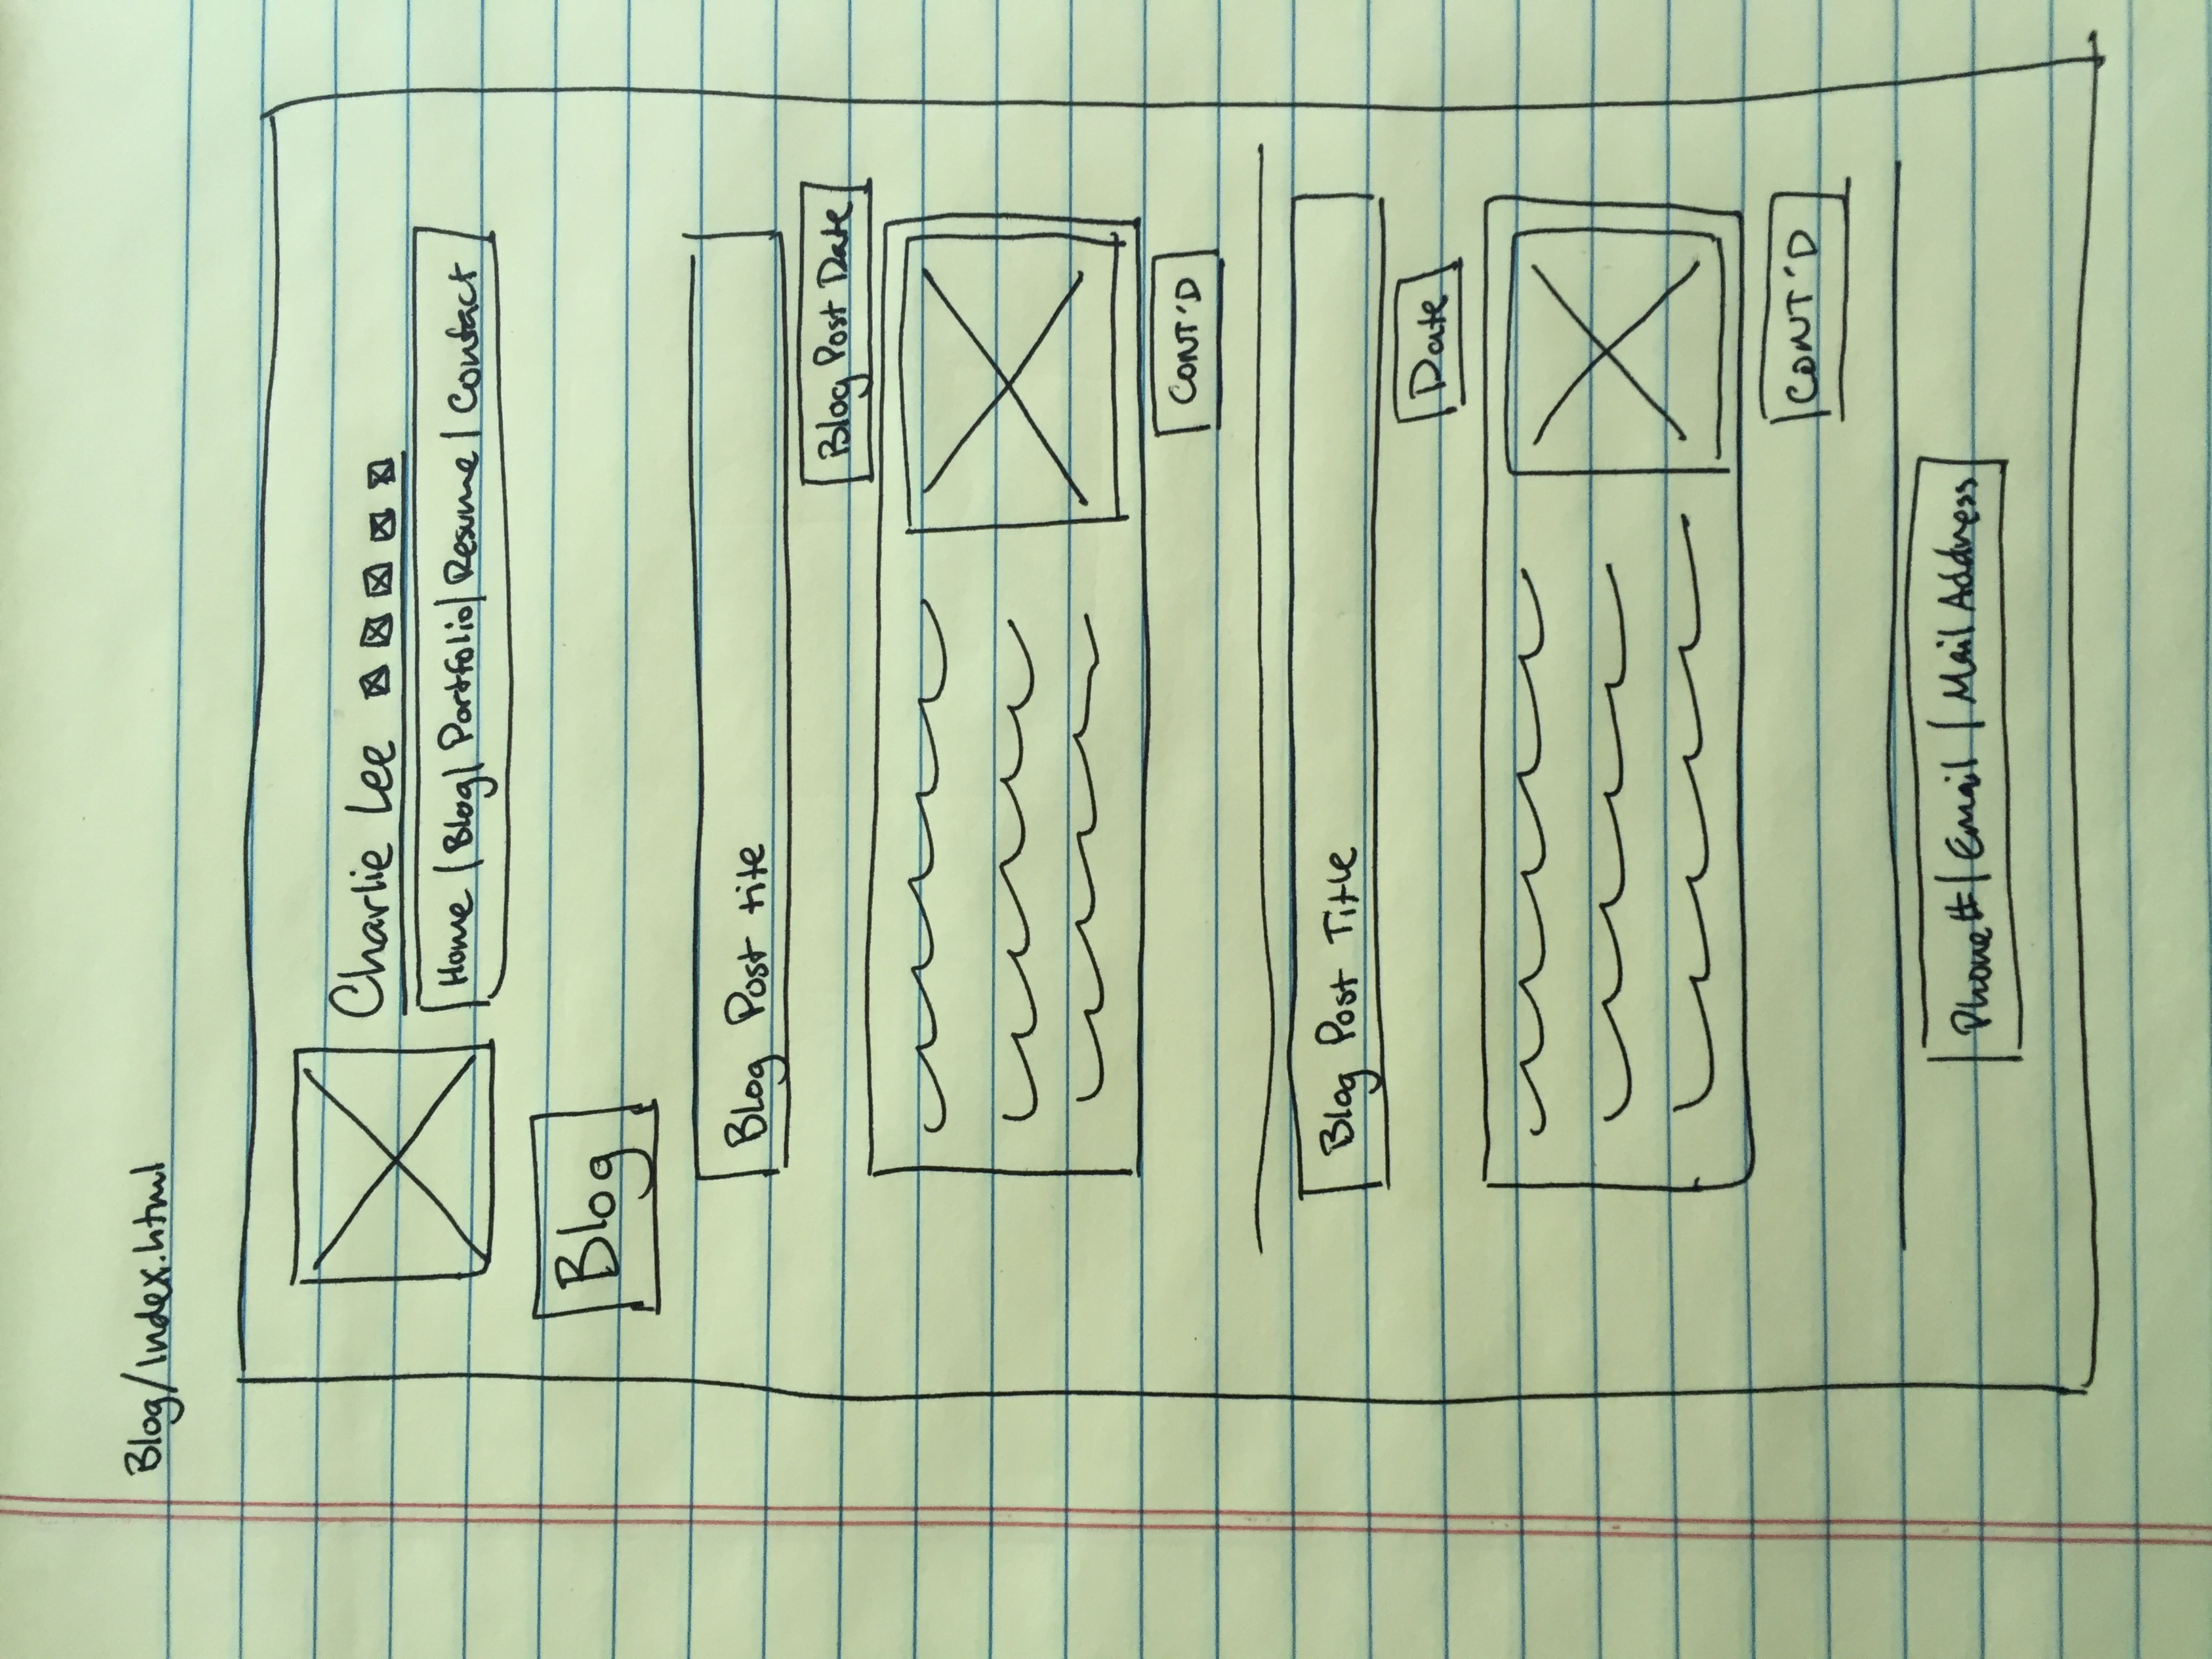 Blog/Index.html
Charlie Lee
Home | Blog | Portfolio | Resume | Contact
Blog
Blog Post tite
Blog Post Date
CONT'D
Blog Post Title
Date
CONT'D
Phone# | Email | Mail Address